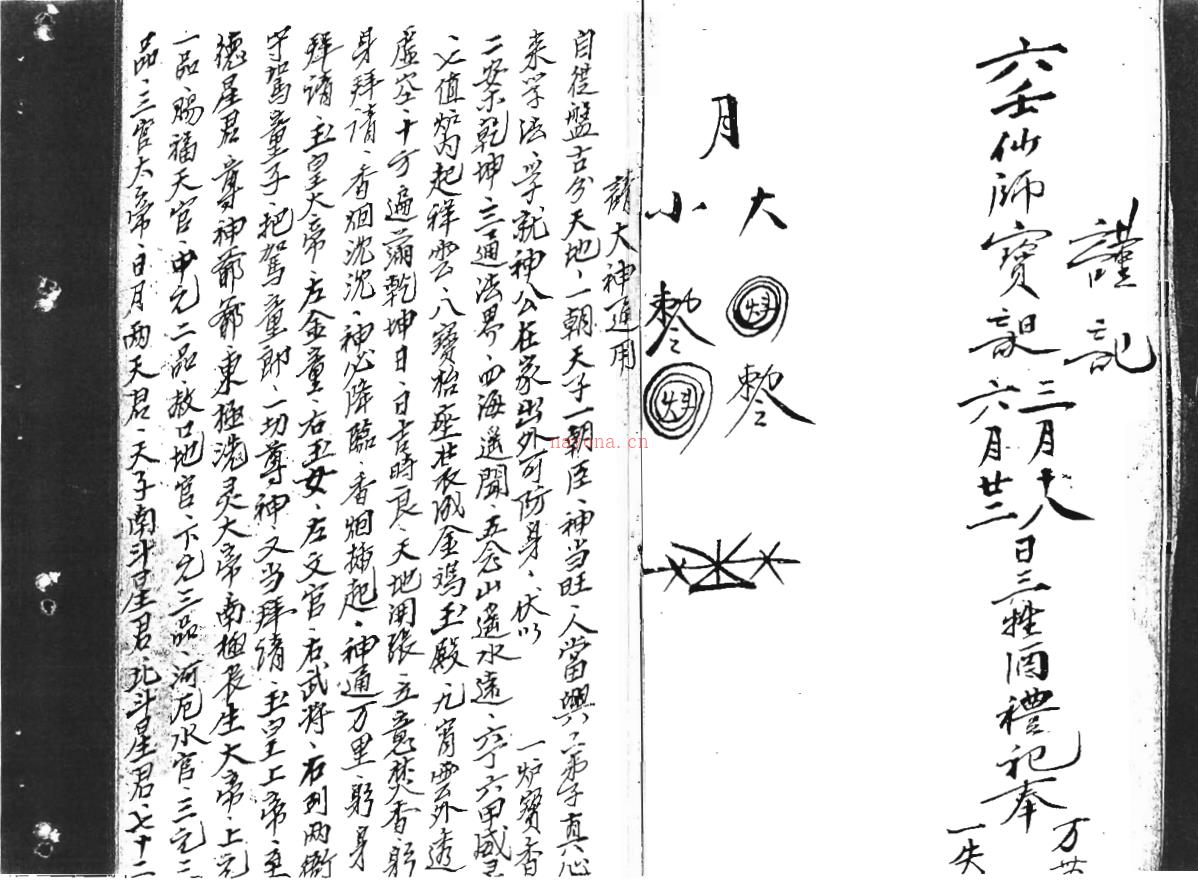 謹記
六壬仙師寶誕
三月十八
六月廿二
日三牲酒禮祀奉
万
一失
月
大
敕
小
敕
請大神通用
自從盤古分天地、一朝天子一朝臣、神当旺人當興、弟子真心
来学法、学就神公在家出外可防身、伏以 一炉寶香
二案乾坤、三通法界、四海遥聞、五念山遥水遠、六丁六甲威
七值炉内起祥雲、八寶枱座壮衣成金鸡玉殿、九霄雲外透
虚空、十方遍满乾坤日、日吉時良、天地開張、立意焚香、躬
身拜請、香烟沈沈、神必降臨、香烟捧起、神通万里、躬身
拜請、玉皇大帝、左金童、右玉女、左文官、右武将、右列两衙
守駕童子、把駕童郎、一切尊神、又当拜請、玉皇上帝、
德星君、尊神爺爺、東極洗灵大帝、南極長生大帝、上元
一品、賜福天官、中元二品、赦口地官、下元三品、河厄水官、三元三
品、三官大帝、日月两天君、天子南斗星君、北斗星君、七十二
nayona.cn